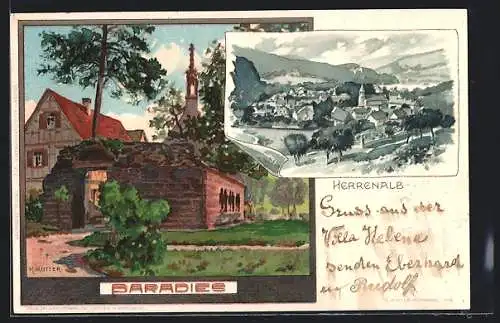 HERRENALB
Gruss aus der
Villa Helene
senden Eberhard
u. Rudolf
PARADIES